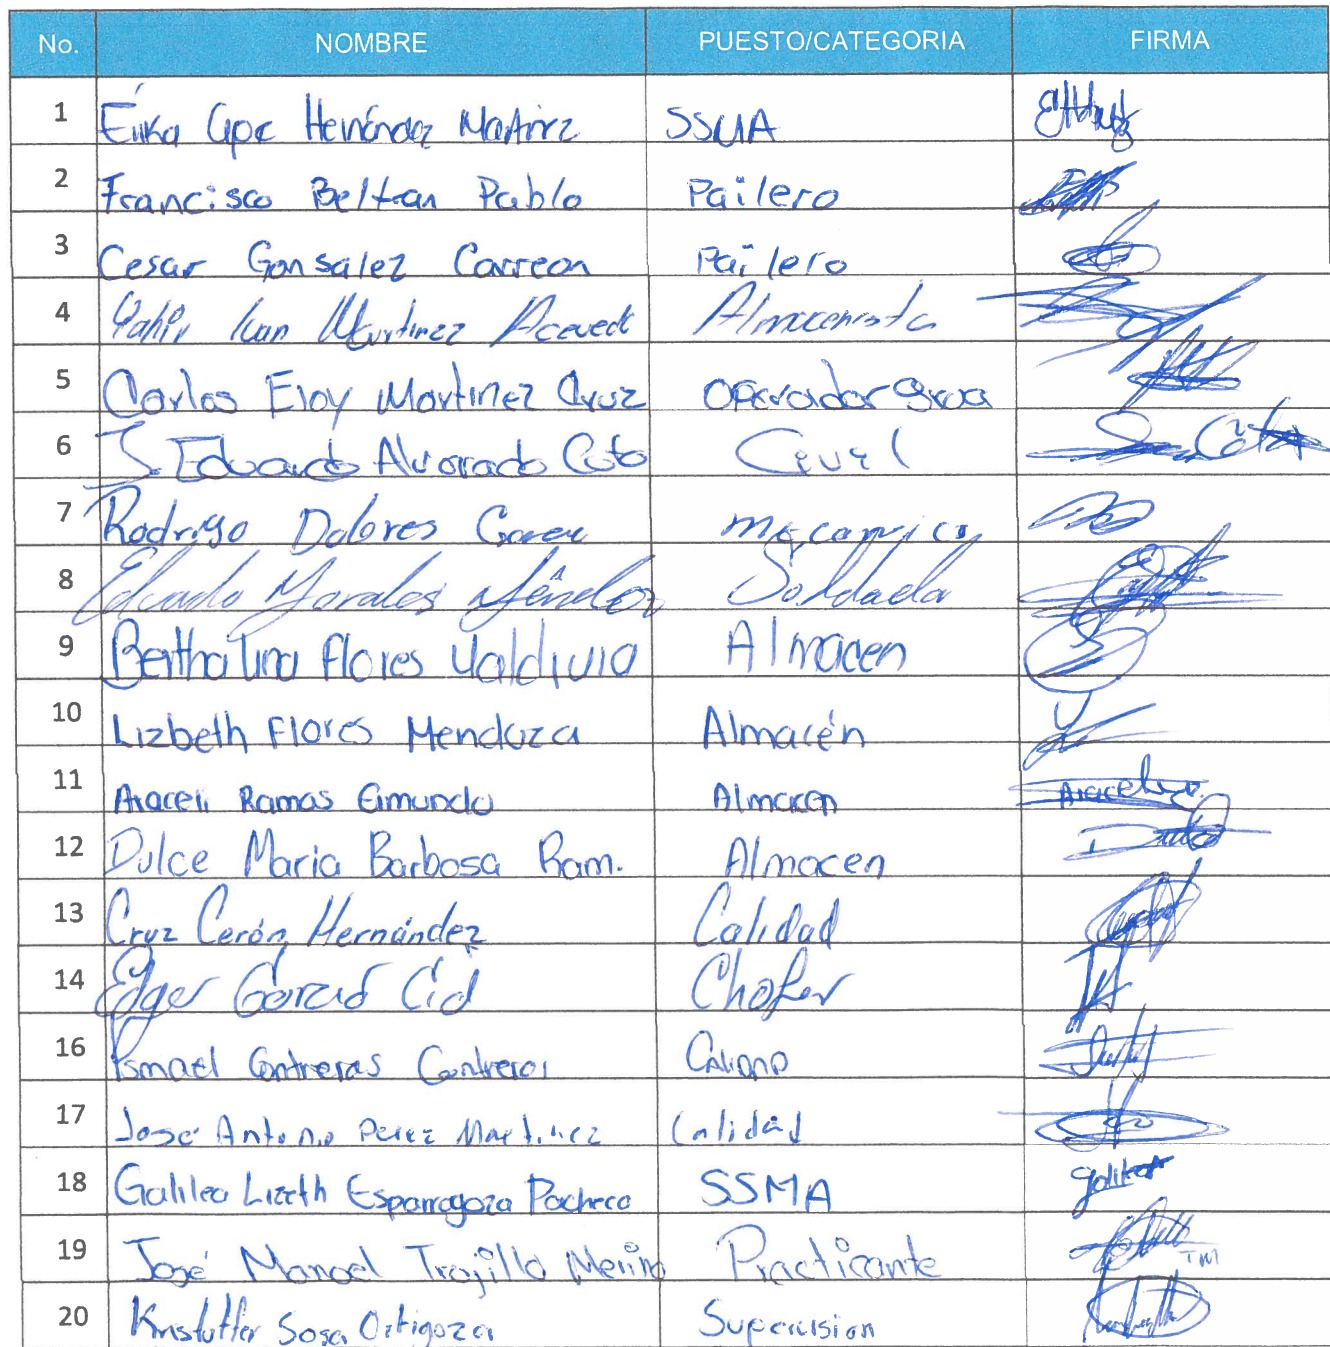 No. NOMBRE PUESTO/CATEGORIA FIRMA
1 Erika Gpe Hernández Martinez SSMA
2 Francisco Beltran Pablo Pailero
3 Cesar Gonsalez Carreon Pailero
4 Yahir Ivan Martinez Aceved Almacenista
5 Carlos Eloy Martinez Cruz Operador grua
6 J. Eduardo Alvarado Coto Civil Coto
7 Rodrigo Dolores mecanico
8 Eduardo Morales Méndez Soldada
9 Bertha Lina Flores Valdivia Almacen
10 Lizbeth Flores Mendoza Almacén
11 Araceli Ramos Eimundo Almacen Araceli
12 Dulce Maria Barbosa Ram. Almacen Dulce
13 Cruz Cerón Hernández Calidad
14 Edger Cid Chofer
16 Ismael Contreras Contreras Calidad
17 José Antonio Perez Martinez Calidad
18 Galilea Lizeth Esparragoza Pacheco SSMA galilea
19 José Manoel Trojillo Merino Practicante TM
20 Kristoffer Sosa Ortigoza Supervision